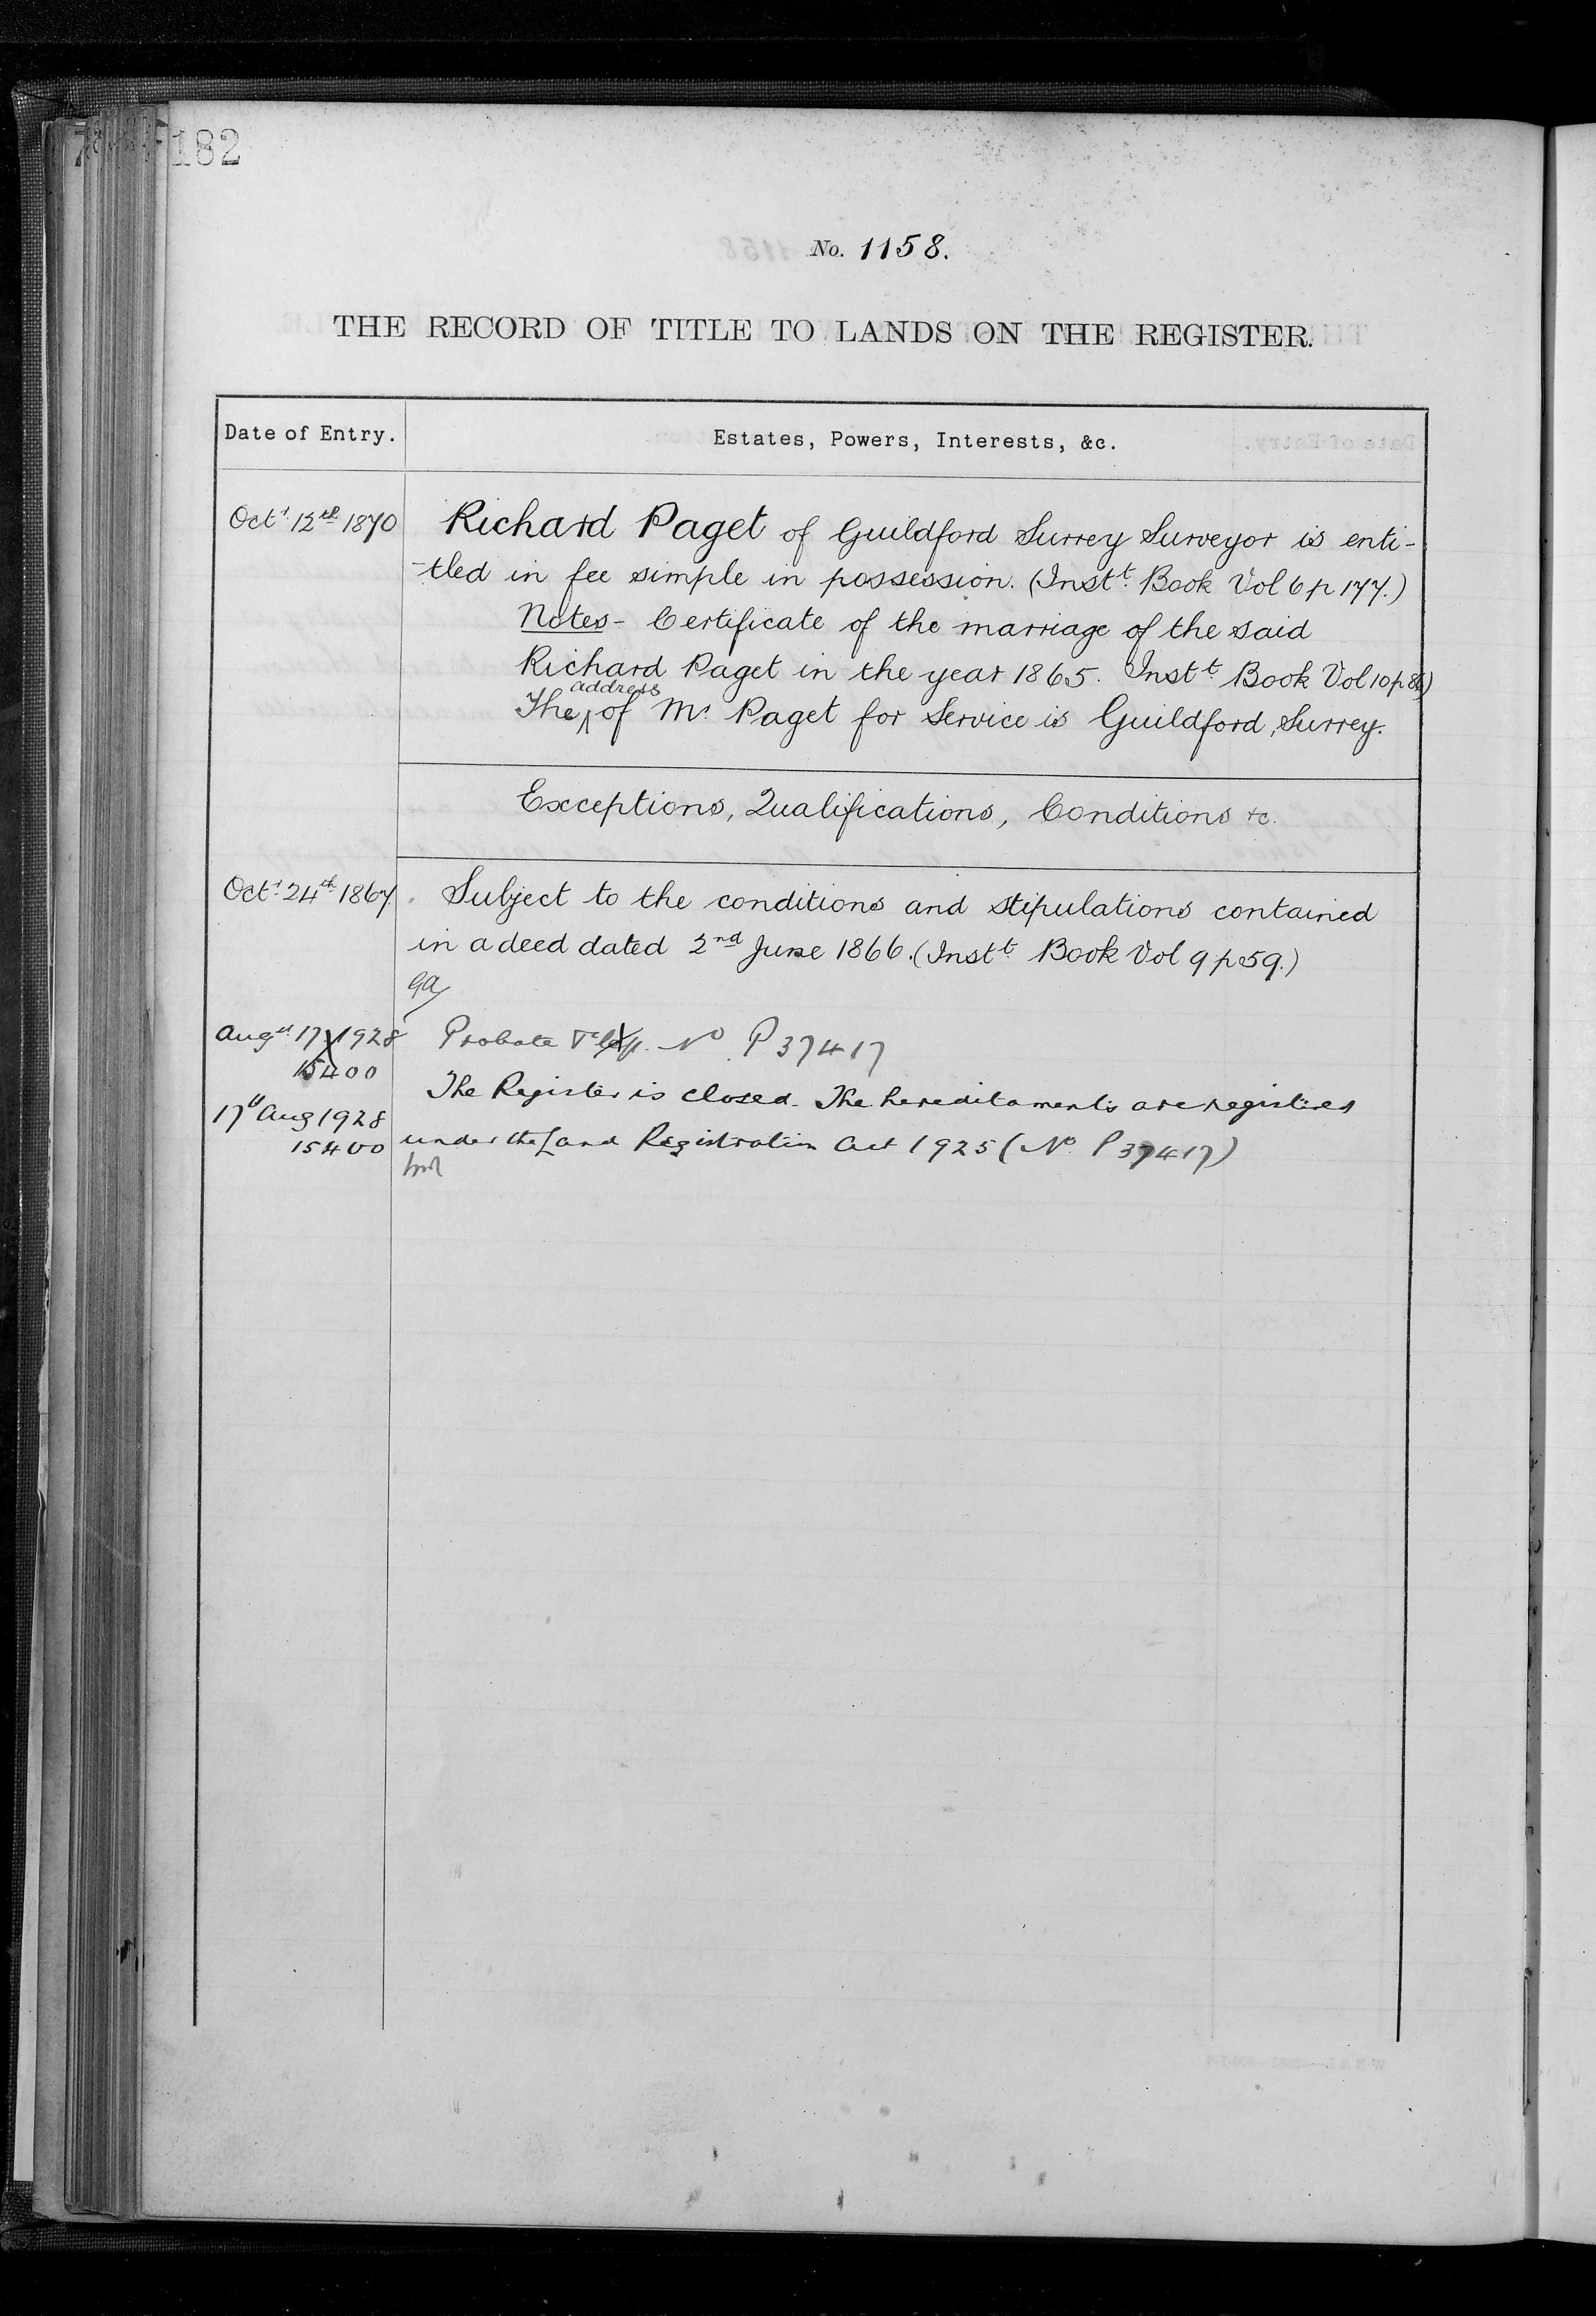 182
No. 1158.
THE RECORD OF TITLE TO LANDS ON THE REGISTER.
Date of Entry.
Estates, Powers, Interests, &c.
Octr. 12th 1870
Richard Paget of Guildford Surrey Surveyor is enti-
-tled in fee simple in possession. (Instt. Book Vol 6 p 177.)
Notes - Certificate of the marriage of the said
Richard Paget in the year 1865. Instt. Book Vol 10 p 86)
The address of Mr. Paget for Service is Guildford, Surrey.
Exceptions, Qualifications, Conditions &c.
Octr. 24th 1867.
Subject to the conditions and stipulations contained
in a deed dated 2nd June 1866. (Instt. Book Vol 9 p 59.)
Augst. 17 1928
15400
Probate No P 37417
17th Aug 1928
15400
The Register is closed. The hereditaments are registered
under the Land Registration Act 1925 (No. P 37417)